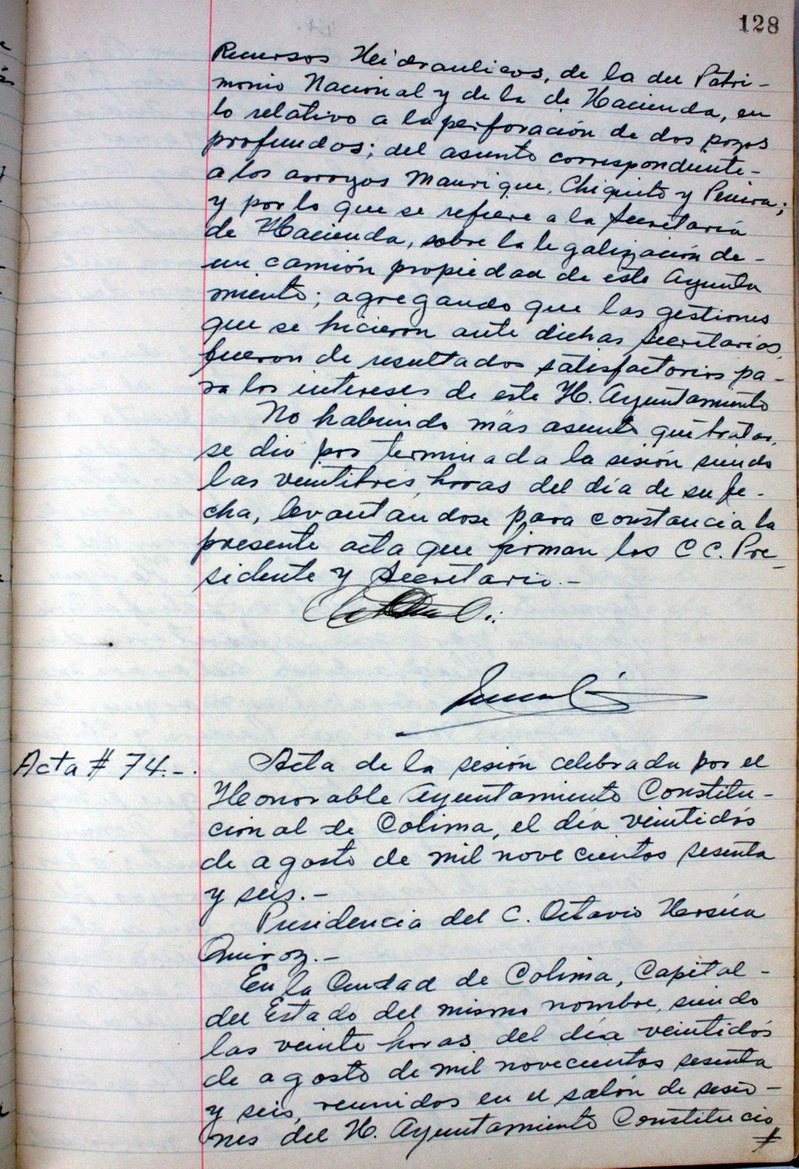 128
Recursos Heidraulicos, de la del Patri-
monio Nacional y de la de Hacienda, en
lo relativo a la perforación de dos pozos
profundos; del asunto correspondiente-
a los arroyos Manrique, Chiquito y Pereira;
y por lo que se refiere a la Secretaria
de Hacienda, sobre la legalización de-
un camión propiedad de este Ayunta
miento; agregando que las gestiones
que se hicieron ante dichas Secretarias,
fueron de resultados satisfactorios pa-
ra los intereses de este H. Ayuntamiento
No habiendo más asunto que tratar,
se dió por terminada la sesión siendo
las veintitres horas del día de su fe-
cha, levantandose para constancia la
presente acta que firman los C C. Pre-
sidente y Secretario.-
Acta # 74.-.
Acta de la sesión celebrada por el
Honorable Ayuntamiento Constitu-
cional de Colima, el día veintidós
de agosto de mil novecientos sesenta
y seis.-
Presidencia del C. Octavio
Quiroz.-
En la Ciudad de Colima, Capital-
del Estado del mismo nombre, siendo
las veinte horas del día veintidós
de agosto de mil novecientos sesenta
y seis, reunidos en el salón de sesio-
nes del H. Ayuntamiento Constitucio